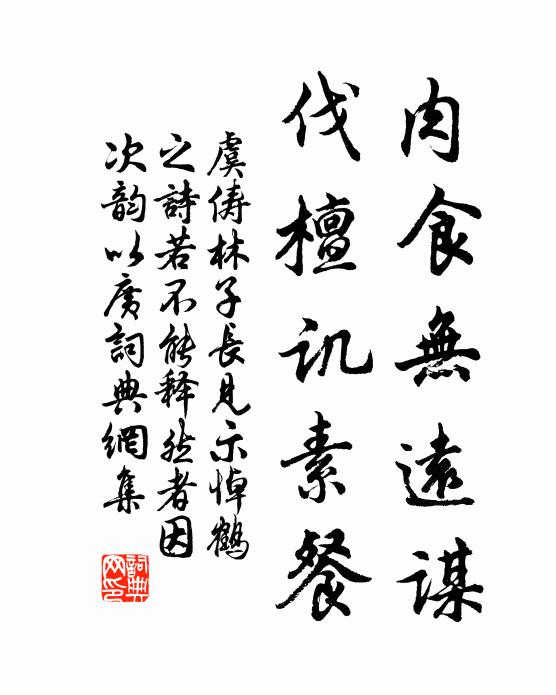 肉食無遠謀
伐檀讥素餐
虞俦林子長見示悼鶴
之詩若不能释然者因
次韵以廣詞典網集
詞典
网印